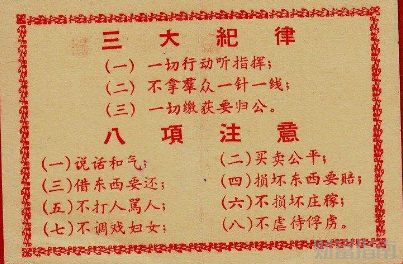 三大紀律
(一) 一切行动听指挥;
(二) 不拿羣众一针一线;
(三) 一切缴获要归公。
八項注意
(一)说话和气; (二)买卖公平;
(三)借东西要还; (四)损坏东西要賠;
(五)不打人駡人; (六)不损坏庄稼;
(七)不调戏妇女; (八)不虐待俘虏。